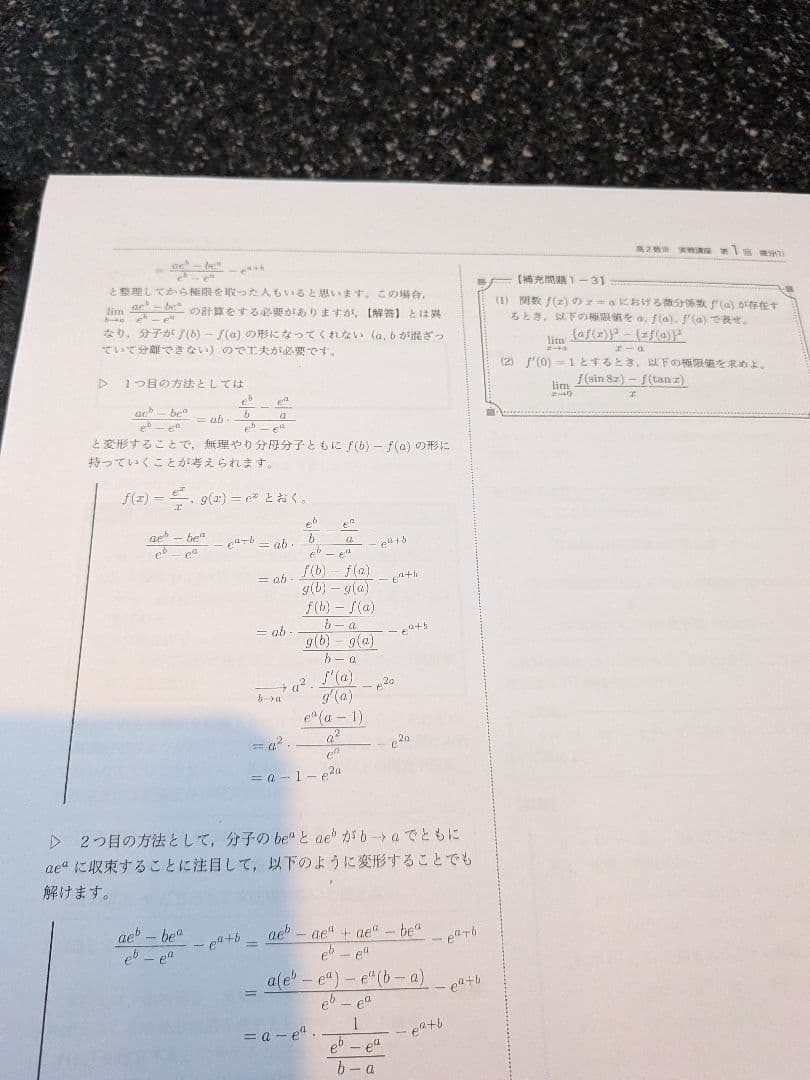 高2数III 実戦講座 第1回 微分(1)
= \frac{ae^b - be^a}{e^b - e^a} - e^{a+b}
と整理してから極限を取った人もいると思います。この場合,
\lim_{b→a} \frac{ae^b - be^a}{e^b - e^a} の計算をする必要がありますが,【解答】とは異
なり, 分子が f(b) − f(a) の形になってくれない (a, b が混ざっ
ていて分離できない) ので工夫が必要です。
▷ 1つ目の方法としては
\frac{ae^b - be^a}{e^b - e^a} = ab · \frac{\frac{e^b}{b} - \frac{e^a}{a}}{e^b - e^a}
と変形することで, 無理やり分母分子ともに f(b) − f(a) の形に
持っていくことが考えられます。
f(x) = \frac{e^x}{x}, g(x) = e^x とおく。
\frac{ae^b - be^a}{e^b - e^a} - e^{a+b} = ab · \frac{\frac{e^b}{b} - \frac{e^a}{a}}{e^b - e^a} - e^{a+b}
= ab · \frac{f(b) - f(a)}{g(b) - g(a)} - e^{a+b}
= ab · \frac{\frac{f(b) - f(a)}{b - a}}{\frac{g(b) - g(a)}{b - a}} - e^{a+b}
\xrightarrow[b→a]{} a^2 · \frac{f'(a)}{g'(a)} - e^{2a}
= a^2 · \frac{\frac{e^a(a - 1)}{a^2}}{e^a} - e^{2a}
= a - 1 - e^{2a}
▷ 2つ目の方法として, 分子の be^a と ae^b が b → a でともに
ae^a に収束することに注目して, 以下のように変形することでも
解けます。
\frac{ae^b - be^a}{e^b - e^a} - e^{a+b} = \frac{ae^b - ae^a + ae^a - be^a}{e^b - e^a} - e^{a+b}
= \frac{a(e^b - e^a) - e^a(b - a)}{e^b - e^a} - e^{a+b}
= a - e^a · \frac{1}{\frac{e^b - e^a}{b - a}} - e^{a+b}
【補充問題1−3】
(1) 関数 f(x) の x = a における微分係数 f'(a) が存在す
るとき, 以下の極限値を a, f(a), f'(a) で表せ。
\lim_{x→a} \frac{\{af(x)\}^2 - \{xf(a)\}^2}{x - a}
(2) f'(0) = 1 とするとき, 以下の極限値を求めよ。
\lim_{x→0} \frac{f(\sin 8x) - f(\tan x)}{x}